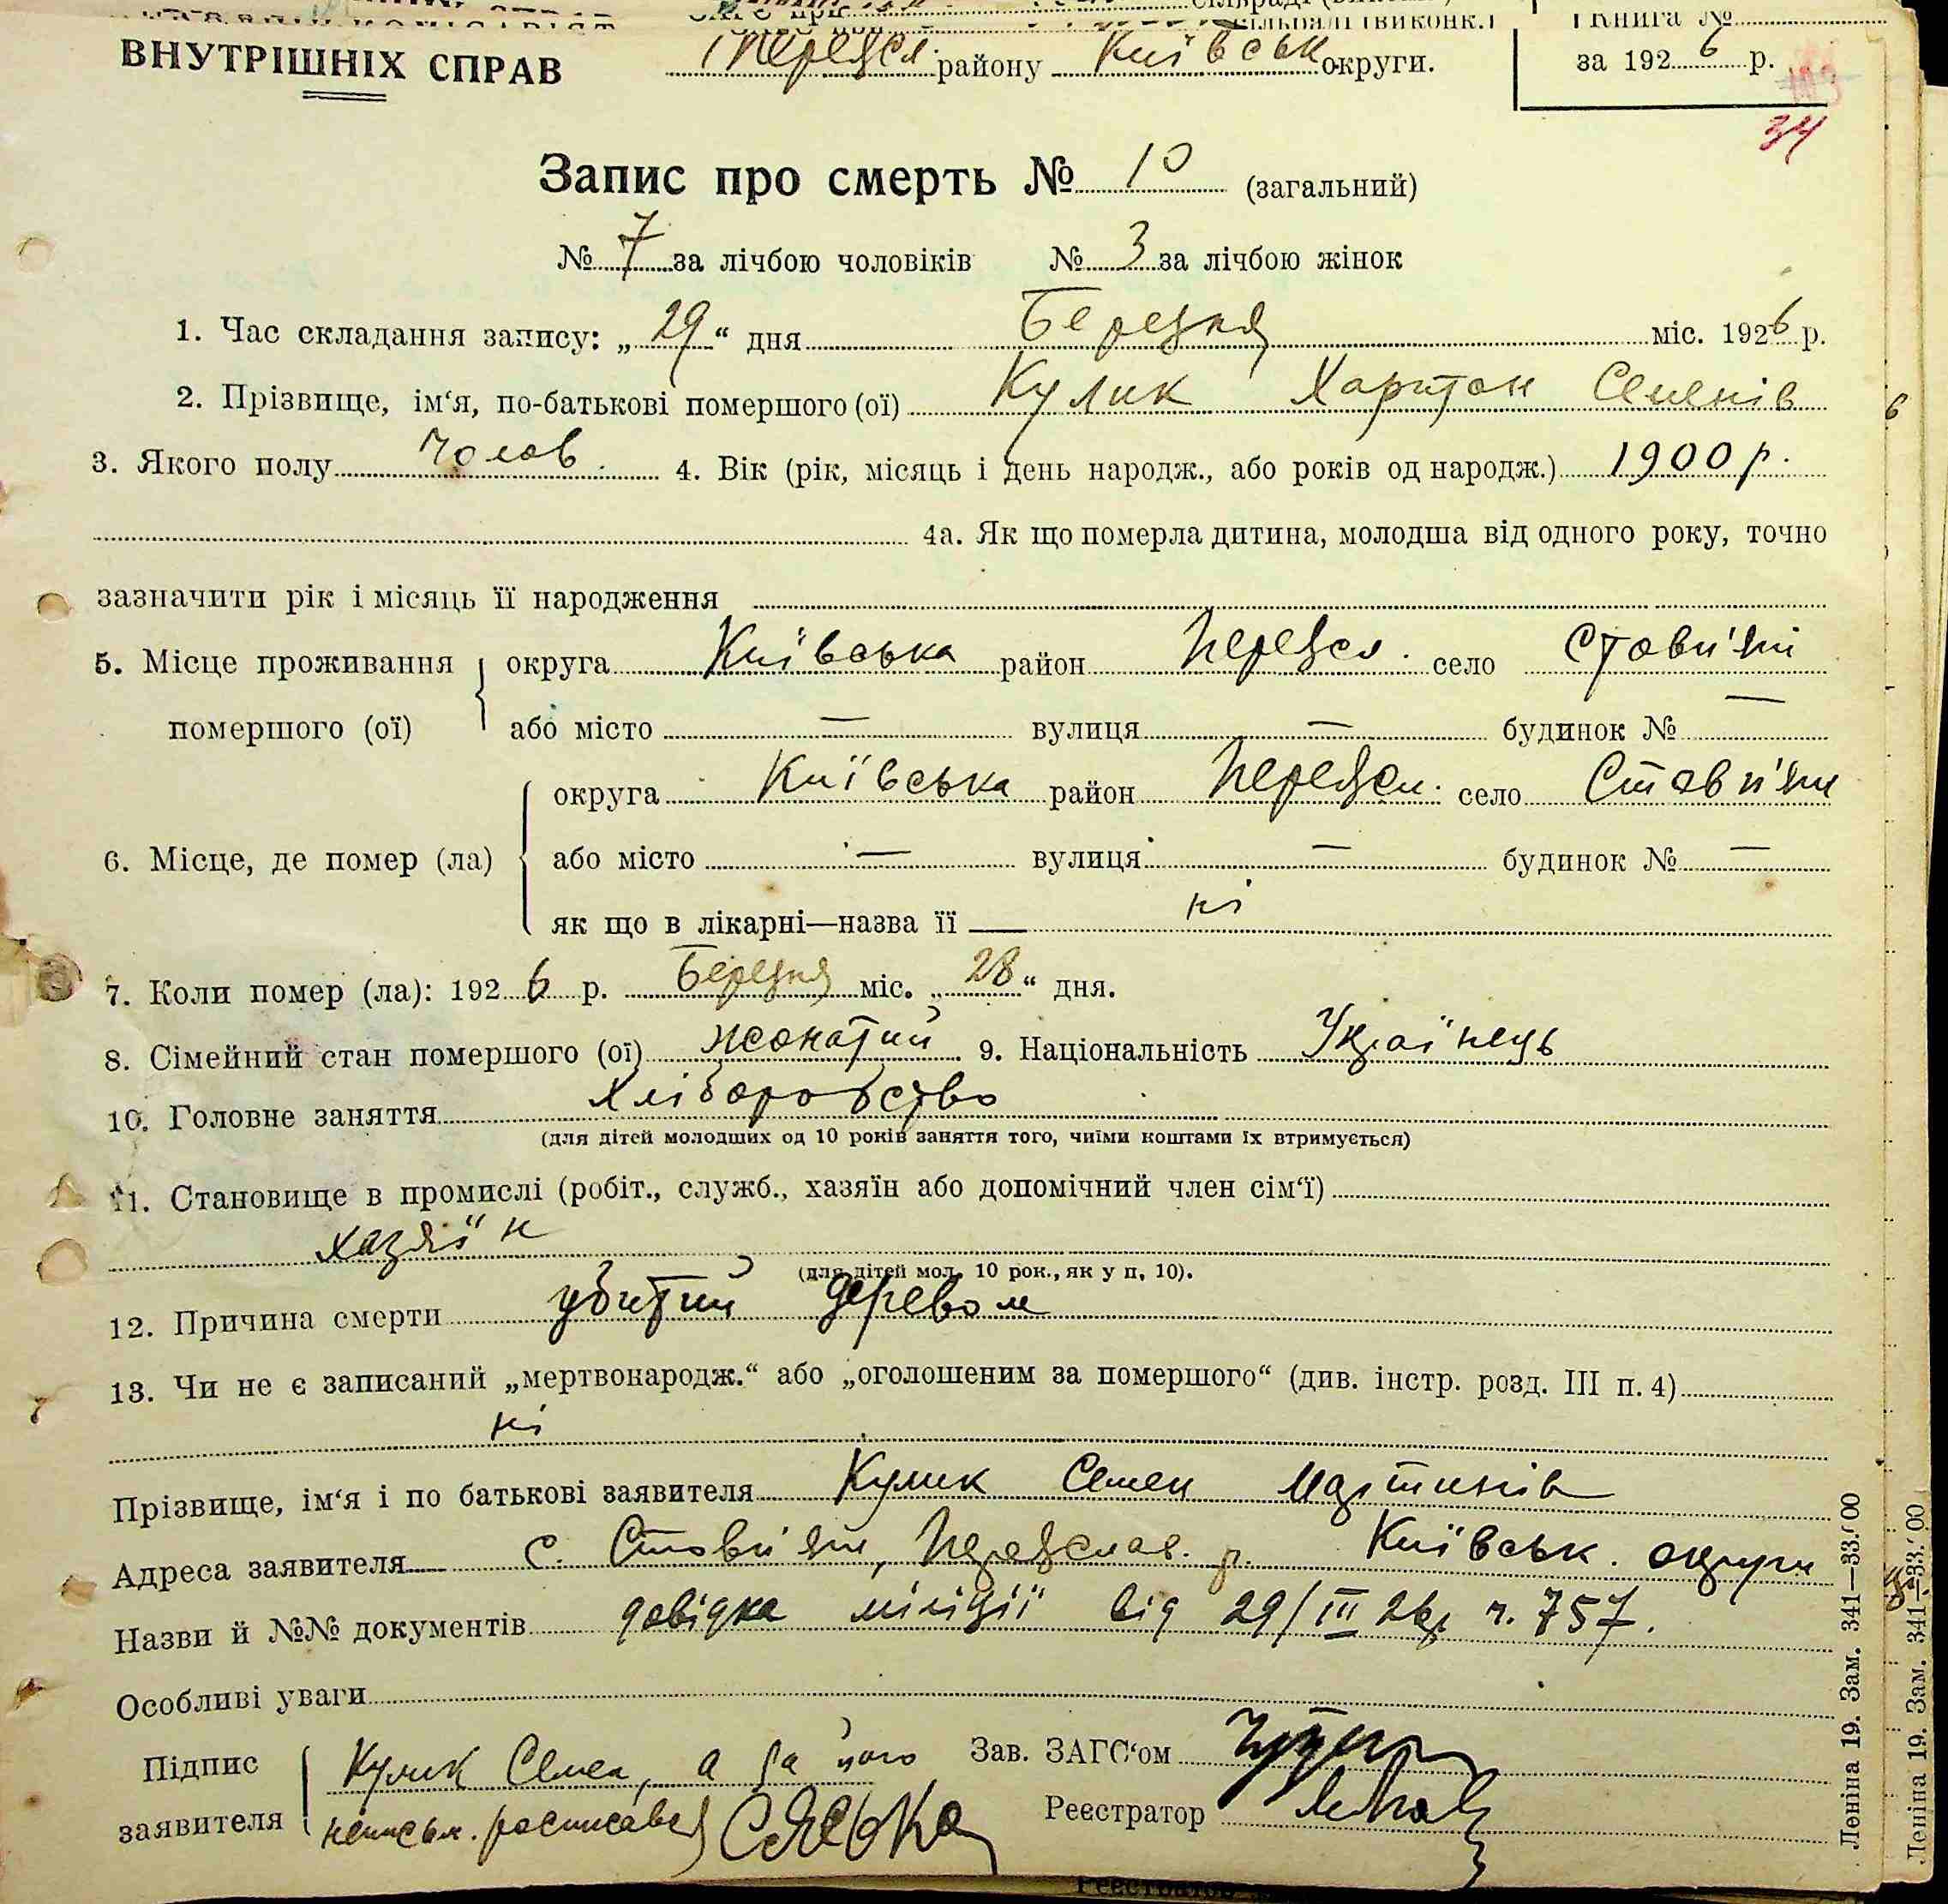 ВНУТРІШНІХ СПРАВ
Переясл. району Київськ округи.
Книга №
за 1926 р.
34
Запис про смерть № 10 (загальний)
№ 7 за лічбою чоловіків № 3 за лічбою жінок
1. Час складання запису: „29“ дня Березня міс. 1926 р.
2. Прізвище, ім‘я, по-батькові помершого (ої) Кулик Харитон Семенів
3. Якого полу Чолов. 4. Вік (рік, місяць і день народж., або років од народж.) 1900 р.
4а. Як що померла дитина, молодша від одного року, точно
зазначити рік і місяць її народження
5. Місце проживання округа Київська район Переясл. селоՍտови'яни
помершого (ої) або місто — вулиця — будинок № —
округа Київська район Переясл. село Стовп'яги
6. Місце, де помер (ла) або місто — вулиця — будинок № —
як що в лікарні—назва її — ні
7. Коли помер (ла): 1926 р. Березня міс. „28“ дня.
8. Сімейний стан помершого (ої) жонатий 9. Національність Українець
10. Головне заняття Хліборобство
(для дітей молодших од 10 років заняття того, чиїми коштами їх втримується)
11. Становище в промислі (робіт., служб., хазяїн або допомічний член сім‘ї)
хазяїн
(для дітей мол. 10 рок., як у п. 10).
12. Причина смерти убитий деревом
13. Чи не є записаний „мертвонародж.“ або „оголошеним за помершого“ (див. інстр. розд. III п. 4)
ні
Прізвище, ім‘я і по батькові заявителя Кулик Семен Мартинів
Адреса заявителя с. Стовп'яги, Переяслав. р. Київськ. округи
Назви й №№ документів довідка міліції від 29/III 26 р. ч. 757.
Особливі уваги
Підпис Кулик Семен, а за його Зав. ЗАГС‘ом
заявителя неписьм. росписавсь Реєстратор
Леніна 19. Зам. 341—33.000
Леніна 19. Зам. 341—33.000